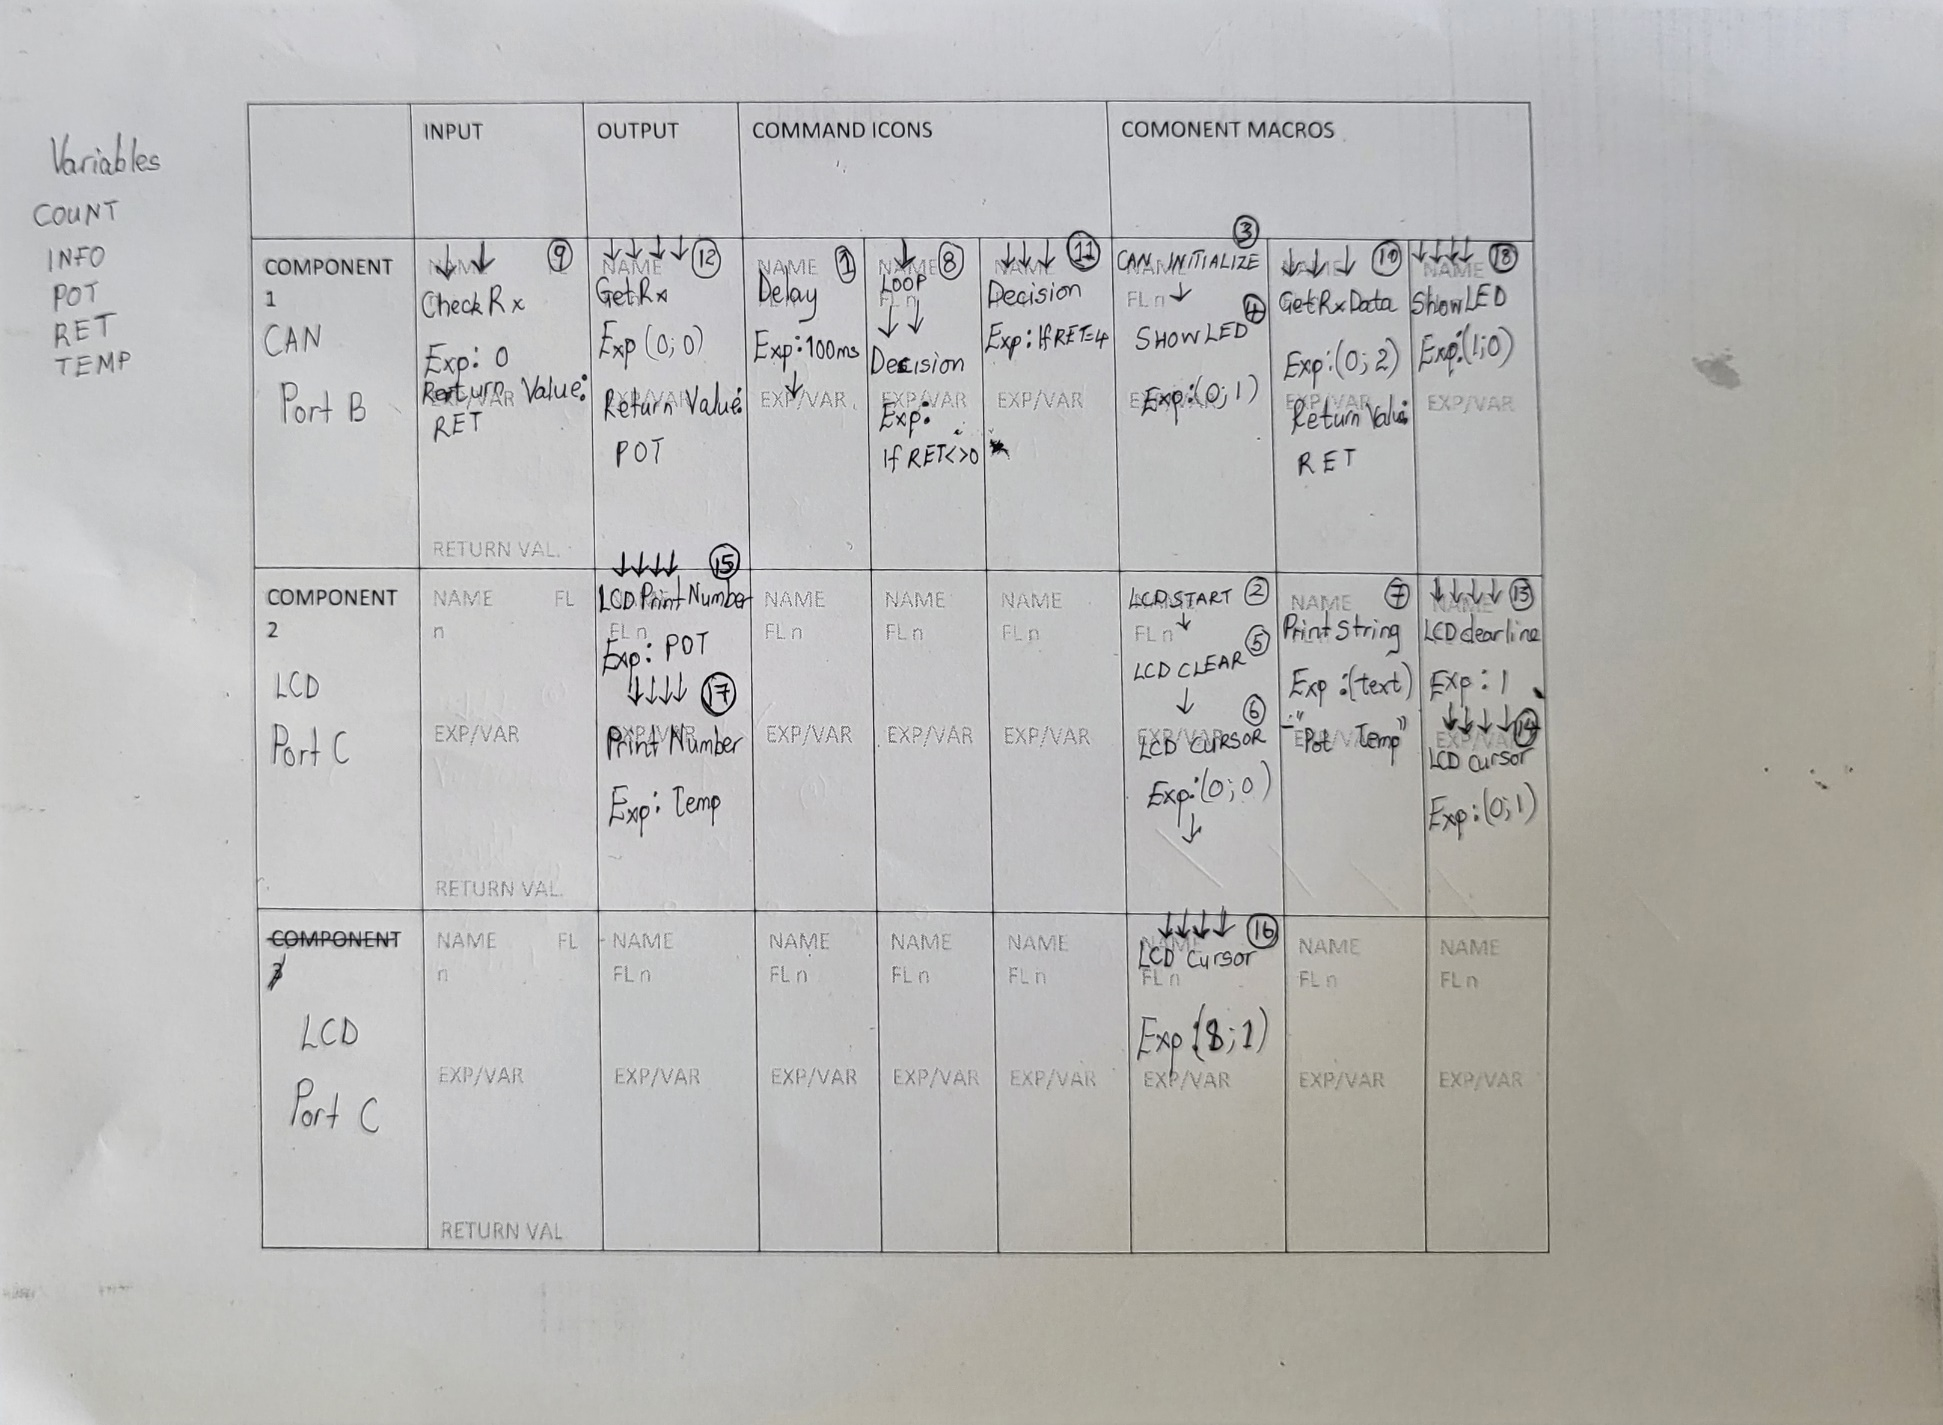 Variables
COUNT
INFO
POT
RET
TEMP
INPUT
OUTPUT
COMMAND ICONS
COMONENT MACROS
COMPONENT
1
CAN
Port B
NAME
9
Check Rx
Exp: 0
EXP/VAR
Return Value:
RET
RETURN VAL.
NAME
12
Get Rx
Exp (0; 0)
EXP/VAR
Return Value:
POT
NAME
1
Delay
Exp: 100ms
EXP/VAR
NAME
8
LOOP
FL n
Decision
EXP/VAR
Exp:
If RET<>0
NAME
11
Decision
Exp: If RET=4
EXP/VAR
3
CAN INITIALIZE
FL n
4
SHOW LED
Exp: (0; 1)
NAME
10
GetRxData
Exp: (0; 2)
EXP/VAR
Return Value:
RET
NAME
18
Show LED
Exp: (1; 0)
EXP/VAR
COMPONENT
2
LCD
Port C
NAME FL
n
EXP/VAR
RETURN VAL.
15
LCD Print Number
FL n
Exp: POT
17
EXP/VAR
Print Number
Exp: Temp
NAME
FL n
EXP/VAR
NAME
FL n
EXP/VAR
NAME
FL n
EXP/VAR
LCD START 2
FL n
5
LCD CLEAR
6
EXP/VAR
LCD CURSOR
Exp: (0; 0)
NAME
7
Print String
Exp: (text)
EXP/VAR
"Pot Temp"
NAME
13
LCD clear line
Exp: 1
14
EXP/VAR
LCD cursor
Exp: (0; 1)
COMPONENT
3
LCD
Port C
NAME FL
n
EXP/VAR
RETURN VAL
NAME
FL n
EXP/VAR
NAME
FL n
EXP/VAR
NAME
FL n
EXP/VAR
NAME
FL n
EXP/VAR
NAME
16
LCD Cursor
FL n
Exp (8; 1)
EXP/VAR
NAME
FL n
EXP/VAR
NAME
FL n
EXP/VAR